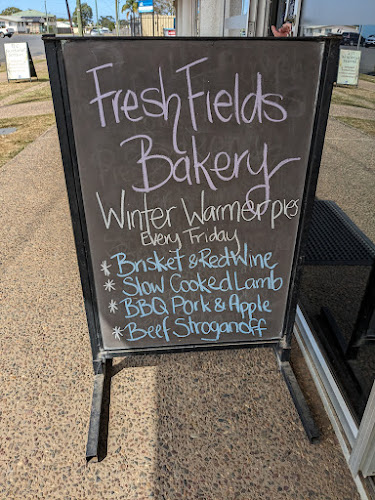 Fresh Fields
Bakery
Winter Warmer pies
Every Friday
* Brisket & Red Wine
* Slow Cooked Lamb
* BBQ Pork & Apple
* Beef Stroganoff